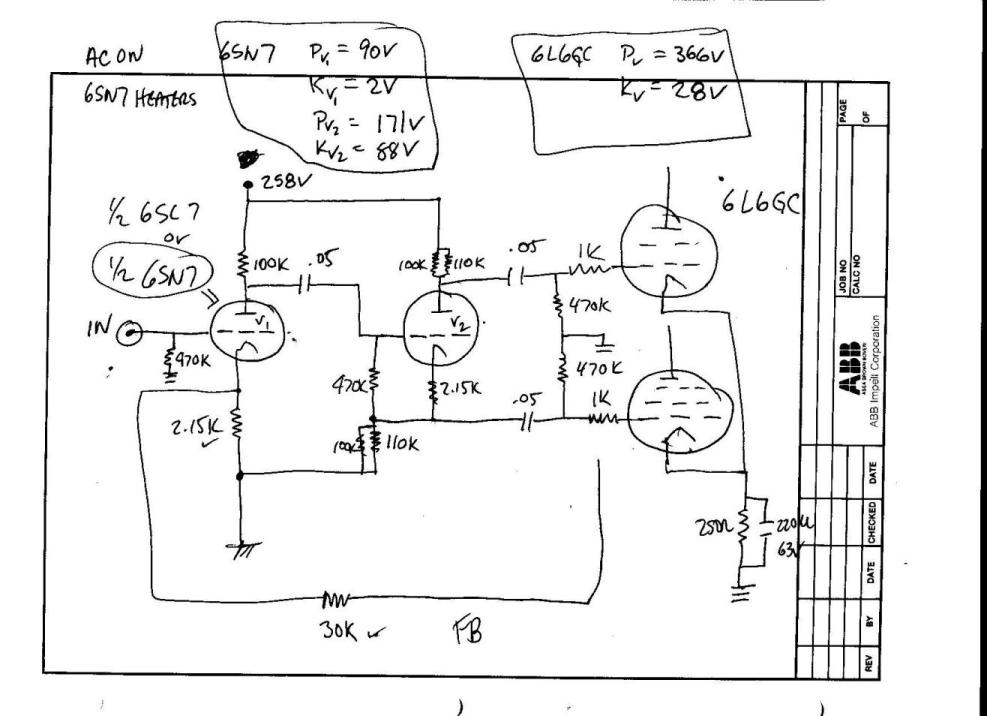 AC ON
6SN7 HEATERS
6SN7 Pv₁ = 90V
Kv₁ = 2V
Pv₂ = 171V
Kv₂ = 88V
6L6GC Pv = 366V
Kv = 28V
258V
6L6GC
½ 6SC7
or
½ 6SN7
100K
.05
100K
110K
.05
1K
IN
V₁
V₂
470K
470K
470K
2.15K
470K
.05
1K
2.15K
100K
110K
250Ω
220u
63V
30K
FB
PAGE
OF
JOB NO
CALC NO
ABB
ASEA BROWN BOVERI
ABB Impell Corporation
DATE
CHECKED
DATE
BY
REV